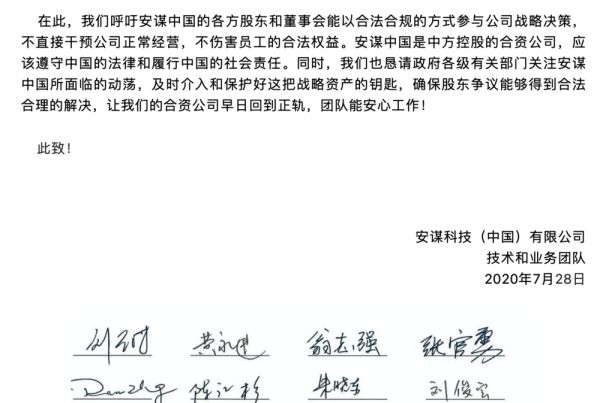 在此，我们呼吁安谋中国的各方股东和董事会能以合法合规的方式参与公司战略决策，
不直接干预公司正常经营，不伤害员工的合法权益。安谋中国是中方控股的合资公司，应
该遵守中国的法律和履行中国的社会责任。同时，我们也恳请政府各级有关部门关注安谋
中国所面临的动荡，及时介入和保护好这把战略资产的钥匙，确保股东争议能够得到合法
合理的解决，让我们的合资公司早日回到正轨，团队能安心工作！
此致！
安谋科技（中国）有限公司
技术和业务团队
2020年7月28日
翁志强
朱晓东 刘俊宏